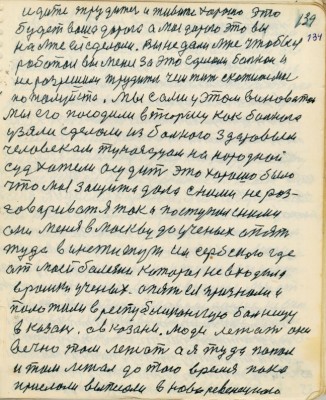 идите трудитесь и живите хорошо это 139
будет ваша дорога а моя дорога это вы 134
на мне сделали. Вы не дали мне чтобы
работал вы меня за это сделали больным и
не разрешили трудится чем так
пожалуйста. Мы сами у этом виноваты
мы его посадили в тюрьму как больного
узяли сделали из больного здоровым
человеком тунеядцам на народной
суд хатели осудить это хорошо было
что моя защита дала сними не раз-
говариватся так и поступили сними
они меня в Москву до ученых опять
туда в институт им сербского где
от моей болезни которая не входила
в рамки ученых. опять признали и
положили в республиканскую больницу
в казань, а в казани. люди лежат они
вечно там лежат а я туда попал
и там лежал до того время пока
прислали выписали в новоровенецкую